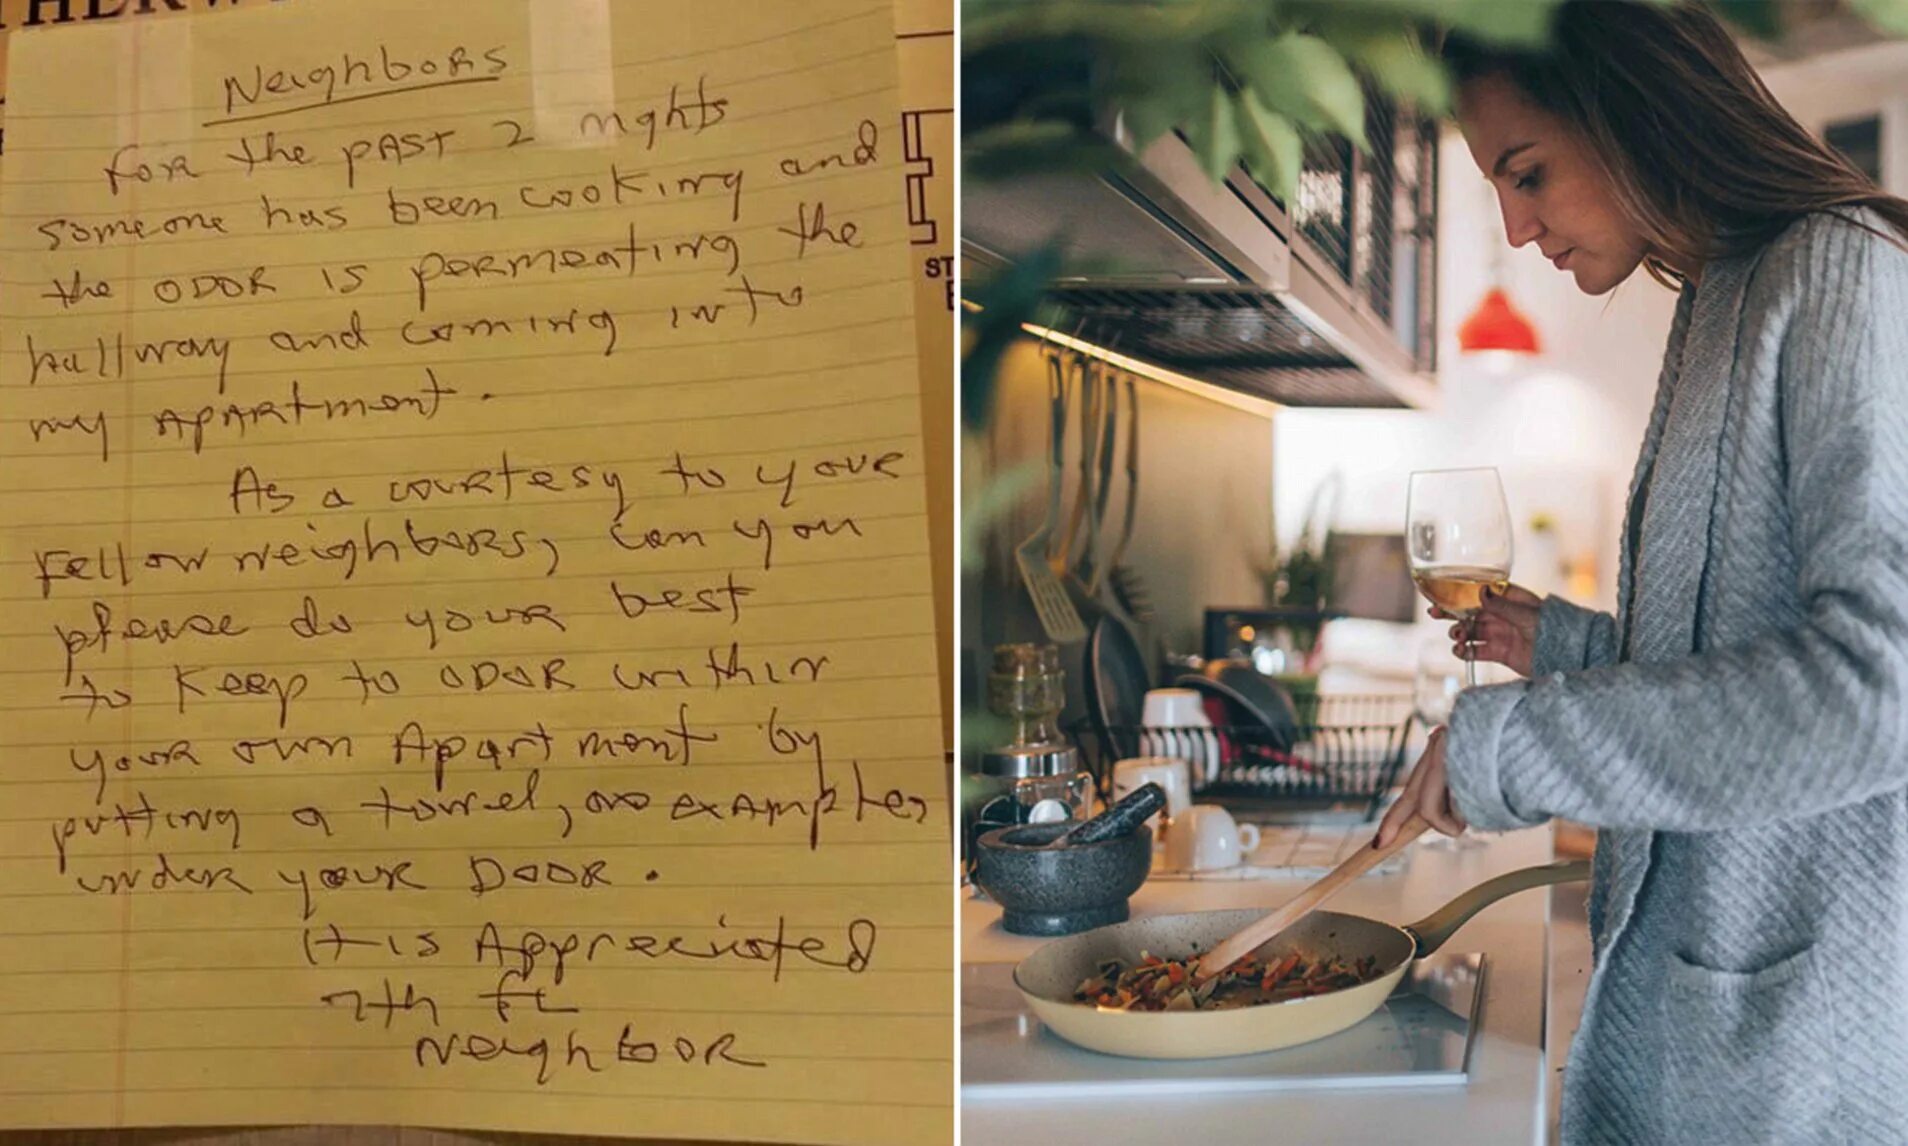 Neighbors
for the past 2 nights
someone has been cooking and
the ODOR is permeating the
hallway and coming into
my apartment.
As a courtesy to your
fellow neighbors, can you
please do your best
to keep to ODOR within
your own Apartment by
putting a towel, as example,
under your DOOR.
It is Appreciated
7th fl
Neighbor
ST